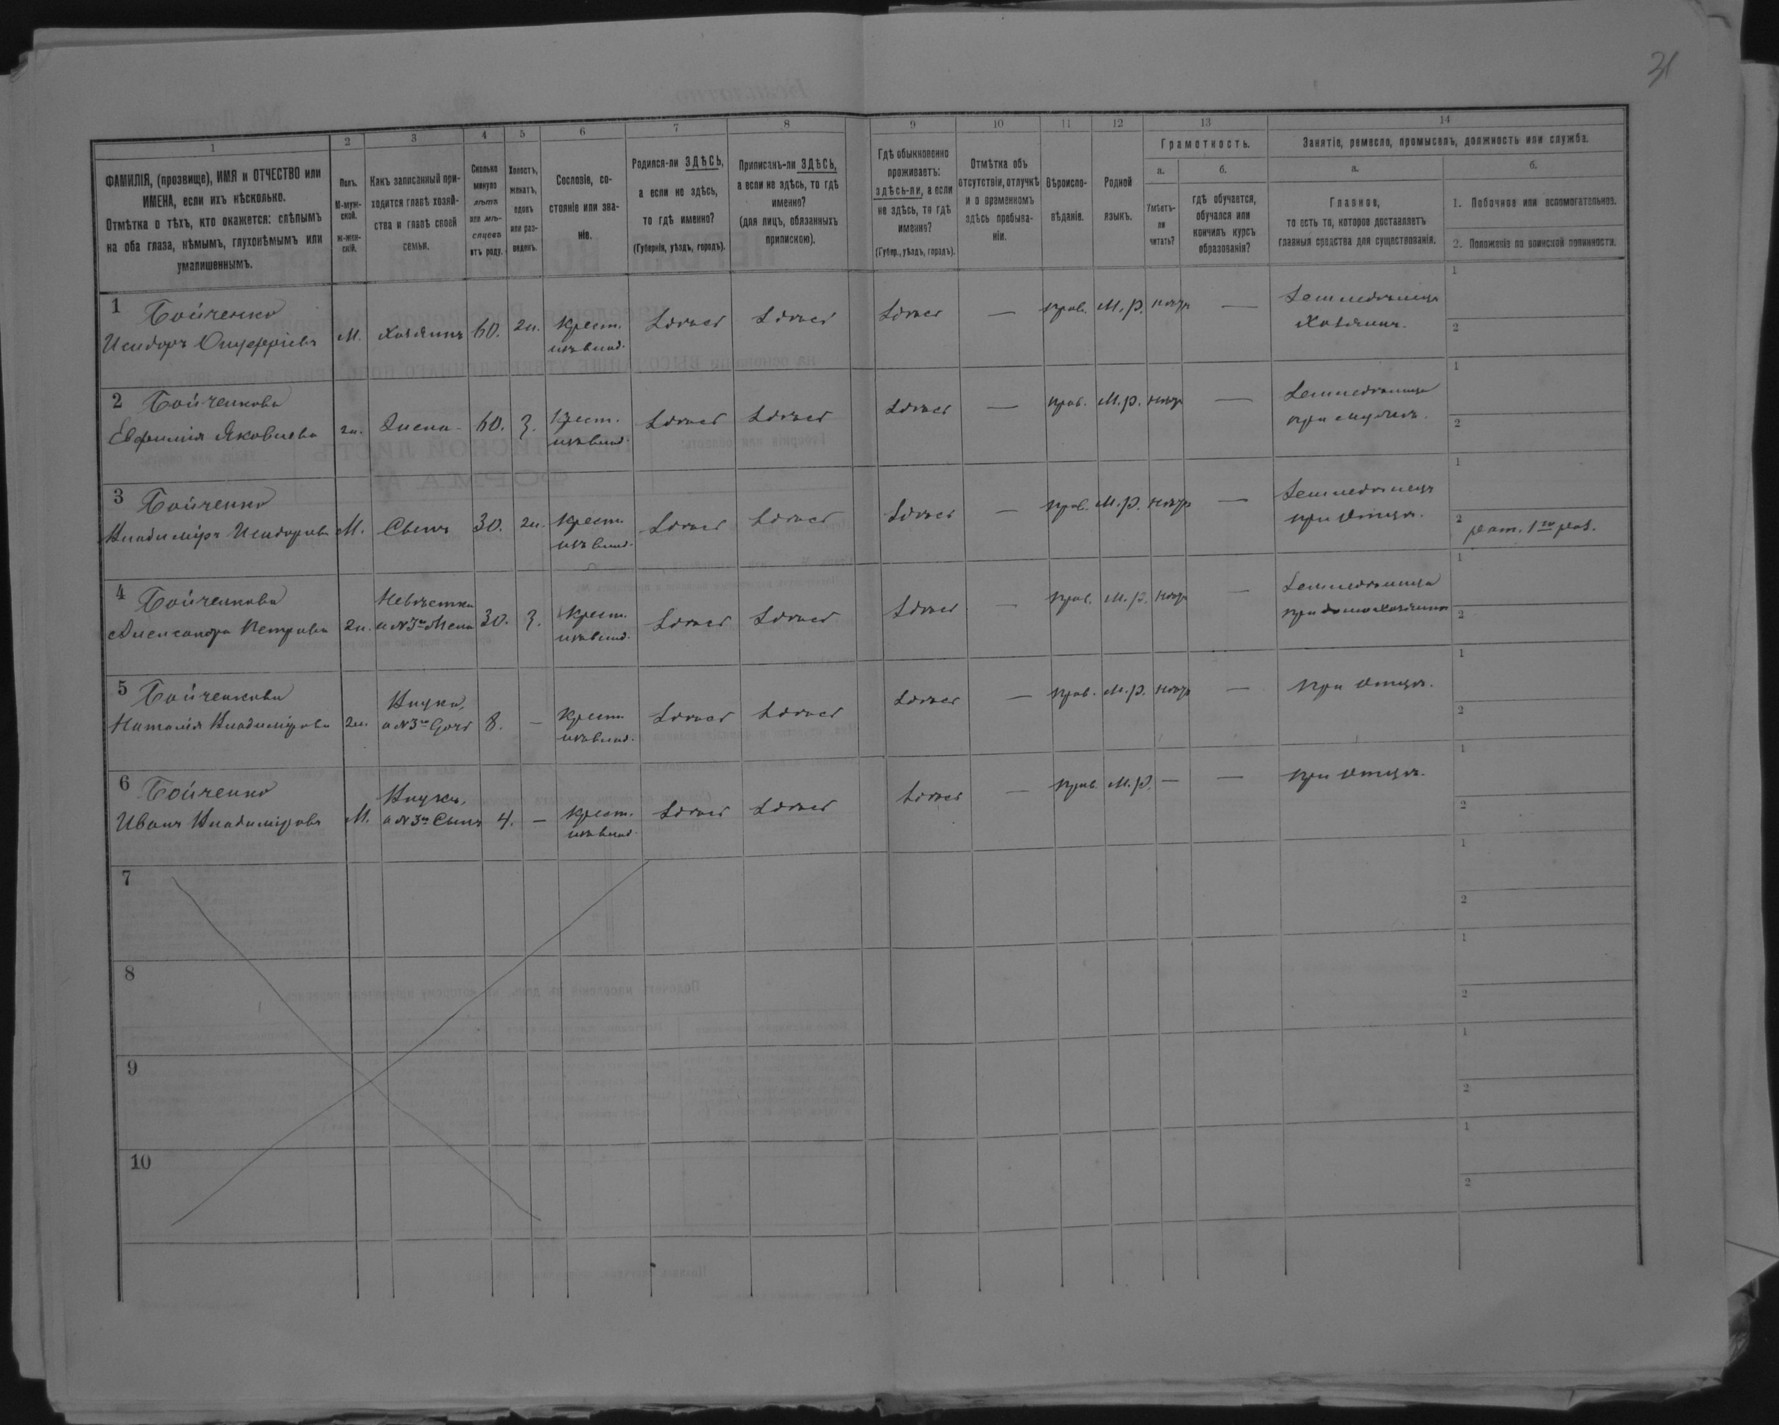 31
1 2 3 4 5 6 7 8 9 10 11 12 13 14
ФАМИЛІЯ, (прозвище), ИМЯ и ОТЧЕСТВО или
ИМЕНА, если ихъ нѣсколько.
Отмѣтка о тѣхъ, кто окажется: слѣпымъ
на оба глаза, нѣмымъ, глухонѣмымъ или
умалишеннымъ.
Полъ.
М-муж-
ской.
Ж-жен-
скій.
Какъ записанный при-
ходится главѣ хозяй-
ства и главѣ своей
семьи.
Сколько
минуло
лѣтъ
или мѣ-
сяцевъ
отъ роду.
Холостъ,
женатъ,
вдовъ
или раз-
веденъ.
Сословіе, со-
стояніе или зва-
ніе.
Родился-ли ЗДѢСЬ,
а если не здѣсь,
то гдѣ именно?
(Губернія, уѣздъ, городъ).
Приписанъ-ли ЗДѢСЬ,
а если не здѣсь, то гдѣ
именно?
(для лицъ, обязанныхъ
припискою).
Гдѣ обыкновенно
проживаетъ:
здѣсь-ли, а если
не здѣсь, то гдѣ
именно?
(Губер., уѣздъ, городъ).
Отмѣтка объ
отсутствіи, отлучкѣ
и о временномъ
здѣсь пребыва-
ніи.
Вѣроиспо-
вѣданіе.
Родной
языкъ.
Грамотность.
а.
Умѣетъ-
ли
читать?
б.
гдѣ обучается,
обучался или
кончилъ курсъ
образованія?
Занятіе, ремесло, промыселъ, должность или служба.
а.
Главное,
то есть то, которое доставляетъ
главныя средства для существованія.
б.
1. Побочное или вспомогательное.
2. Положеніе по воинской повинности.
1 Бойченко
Исидоръ Онуфріевъ М. Хозяинъ 60. ж. Крест. Здѣсь Здѣсь Здѣсь — прав. М.р. — Земледѣлецъ
Хозяинъ.
1
2
2 Бойченкова
Евфимія Яковлева ж. Жена 60. З. Крест. Здѣсь Здѣсь Здѣсь — прав. М.р. —
при мужѣ.
1
2
3 Бойченко
Владиміръ Исидоровъ М. Сынъ 30. ж. Крест. Здѣсь Здѣсь Здѣсь — прав. М.р. — Земледѣлецъ
при отцѣ.
1
2 рат. 1го раз.
4 Бойченкова Невѣстка
Александра Петрова ж. а №3го Жена 30. З. Крест. Здѣсь Здѣсь Здѣсь — прав. М.р. —
1
2
5 Бойченкова Внука,
Наталія Владимірова ж. а №3го Дочь 8. — Крест. Здѣсь Здѣсь Здѣсь — прав. М.р. — при отцѣ.
1
2
6 Бойченко Внукъ,
Иванъ Владиміровъ М. а №3го Сынъ 4. — Крест. Здѣсь Здѣсь Здѣсь — прав. М.р. — — при отцѣ.
1
2
7
1
2
8
1
2
9
1
2
10
1
2